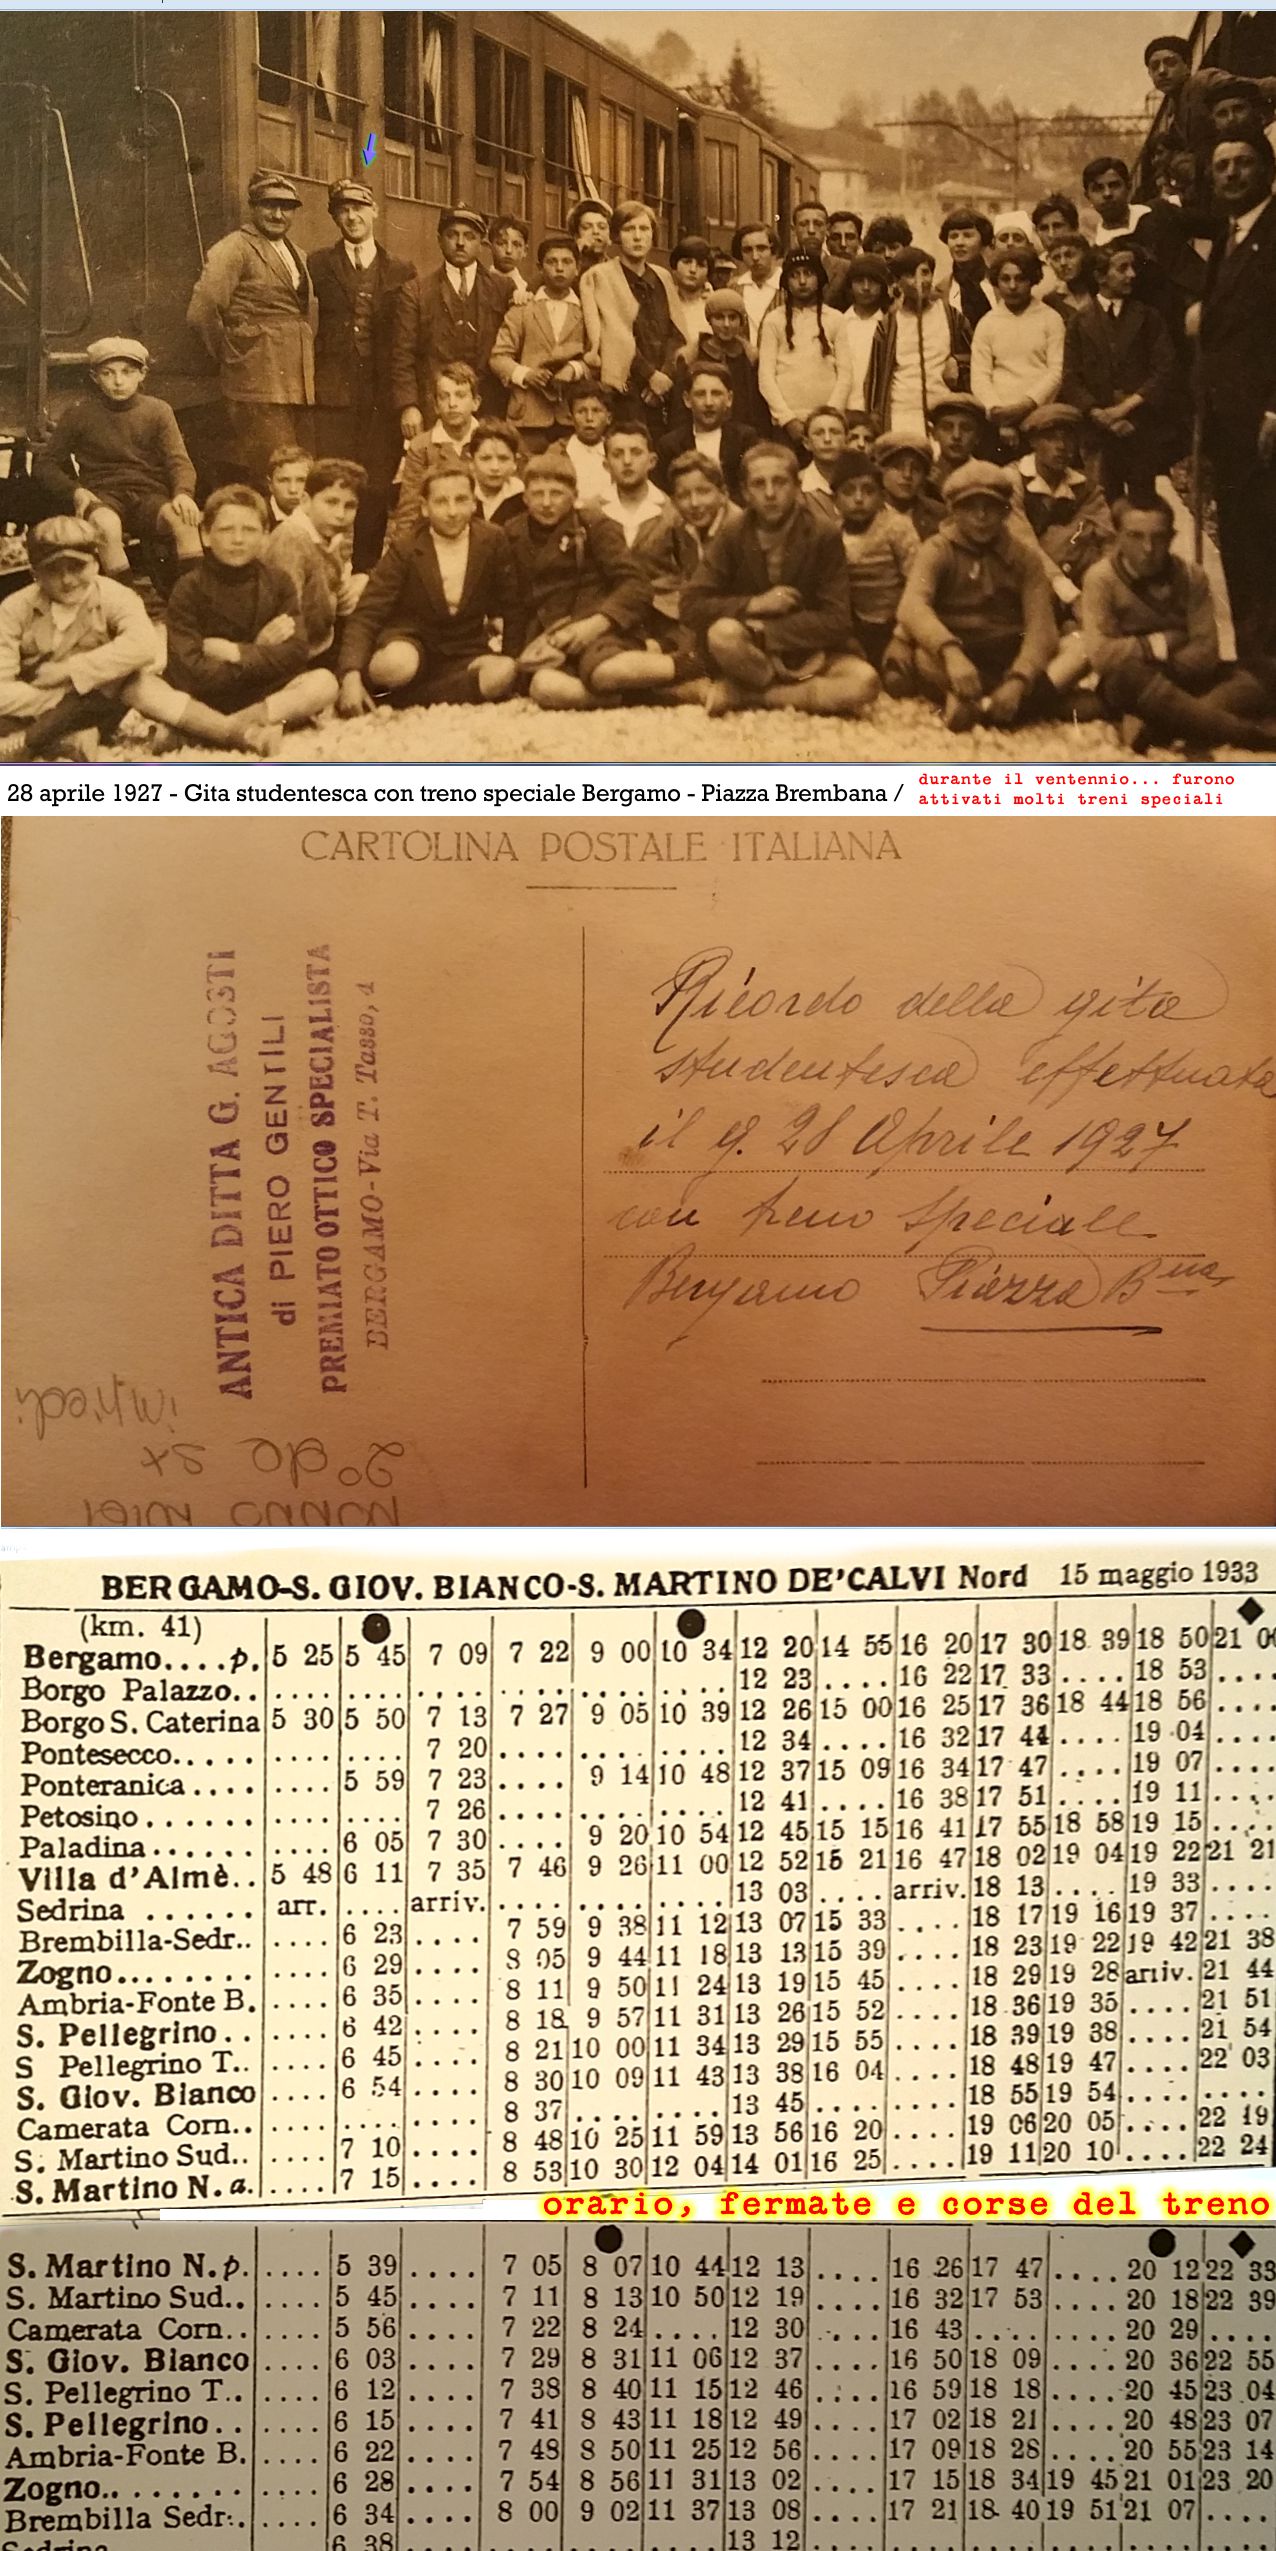 28 aprile 1927 - Gita studentesca con treno speciale Bergamo - Piazza Brembana /
durante il ventennio... furono
attivati molti treni speciali
CARTOLINA POSTALE ITALIANA
ANTICA DITTA G. AGOSTI
di PIERO GENTILI
PREMIATO OTTICO SPECIALISTA
BERGAMO - Via T. Tasso, 4
Ricordo della gita
studentesca effettuata
il g. 28 Aprile 1927
con treno speciale
Bergamo Piazza Bna
nonno
2° da sx
in piedi
BERGAMO-S. GIOV. BIANCO-S. MARTINO DE'CALVI Nord 15 maggio 1933
(km. 41) ● ● ◆
Bergamo....p. 5 25 5 45 7 09 7 22 9 00 10 34 12 20 14 55 16 20 17 30 18 39 18 50 21 00
Borgo Palazzo.. .... .... .... .... .... .... 12 23 .... 16 22 17 33 .... 18 53 ....
Borgo S. Caterina 5 30 5 50 7 13 7 27 9 05 10 39 12 26 15 00 16 25 17 36 18 44 18 56 ....
Pontesecco..... .... .... 7 20 .... .... .... 12 34 .... 16 32 17 44 .... 19 04 ....
Ponteranica.... .... 5 59 7 23 .... 9 14 10 48 12 37 15 09 16 34 17 47 .... 19 07 ....
Petosino...... .... .... 7 26 .... .... .... 12 41 .... 16 38 17 51 .... 19 11 ....
Paladina...... .... 6 05 7 30 .... 9 20 10 54 12 45 15 15 16 41 17 55 18 58 19 15 ....
Villa d'Almè.. 5 48 6 11 7 35 7 46 9 26 11 00 12 52 15 21 16 47 18 02 19 04 19 22 21 21
Sedrina ...... arr. .... arriv. .... .... .... 13 03 .... arriv. 18 13 .... 19 33 ....
Brembilla-Sedr.. .... 6 23 .... 7 59 9 38 11 12 13 07 15 33 .... 18 17 19 16 19 37 ....
Zogno........ .... 6 29 .... 8 05 9 44 11 18 13 13 15 39 .... 18 23 19 22 19 42 21 38
Ambria-Fonte B. .... 6 35 .... 8 11 9 50 11 24 13 19 15 45 .... 18 29 19 28 arriv. 21 44
S. Pellegrino.. .... 6 42 .... 8 18 9 57 11 31 13 26 15 52 .... 18 36 19 35 .... 21 51
S Pellegrino T.. .... 6 45 .... 8 21 10 00 11 34 13 29 15 55 .... 18 39 19 38 .... 21 54
S. Giov. Bianco .... 6 54 .... 8 30 10 09 11 43 13 38 16 04 .... 18 48 19 47 .... 22 03
Camerata Corn.. .... .... .... 8 37 .... .... 13 45 .... .... 18 55 19 54 .... ....
S. Martino Sud.. .... 7 10 .... 8 48 10 25 11 59 13 56 16 20 .... 19 06 20 05 .... 22 19
S. Martino N. a. .... 7 15 .... 8 53 10 30 12 04 14 01 16 25 .... 19 11 20 10 .... 22 24
orario, fermate e corse del treno
● ● ◆
S. Martino N. p. .... 5 39 .... 7 05 8 07 10 44 12 13 .... 16 26 17 47 .... 20 12 22 33
S. Martino Sud.. .... 5 45 .... 7 11 8 13 10 50 12 19 .... 16 32 17 53 .... 20 18 22 39
Camerata Corn.. .... 5 56 .... 7 22 8 24 .... 12 30 .... 16 43 .... .... 20 29 ....
S. Giov. Bianco .... 6 03 .... 7 29 8 31 11 06 12 37 .... 16 50 18 09 .... 20 36 22 55
S. Pellegrino T.. .... 6 12 .... 7 38 8 40 11 15 12 46 .... 16 59 18 18 .... 20 45 23 04
S. Pellegrino.. .... 6 15 .... 7 41 8 43 11 18 12 49 .... 17 02 18 21 .... 20 48 23 07
Ambria-Fonte B. .... 6 22 .... 7 48 8 50 11 25 12 56 .... 17 09 18 28 .... 20 55 23 14
Zogno........ .... 6 28 .... 7 54 8 56 11 31 13 02 .... 17 15 18 34 19 45 21 01 23 20
Brembilla Sedr.. .... 6 34 .... 8 00 9 02 11 37 13 08 .... 17 21 18 40 19 51 21 07 ....
Sedrina 6 38 13 12